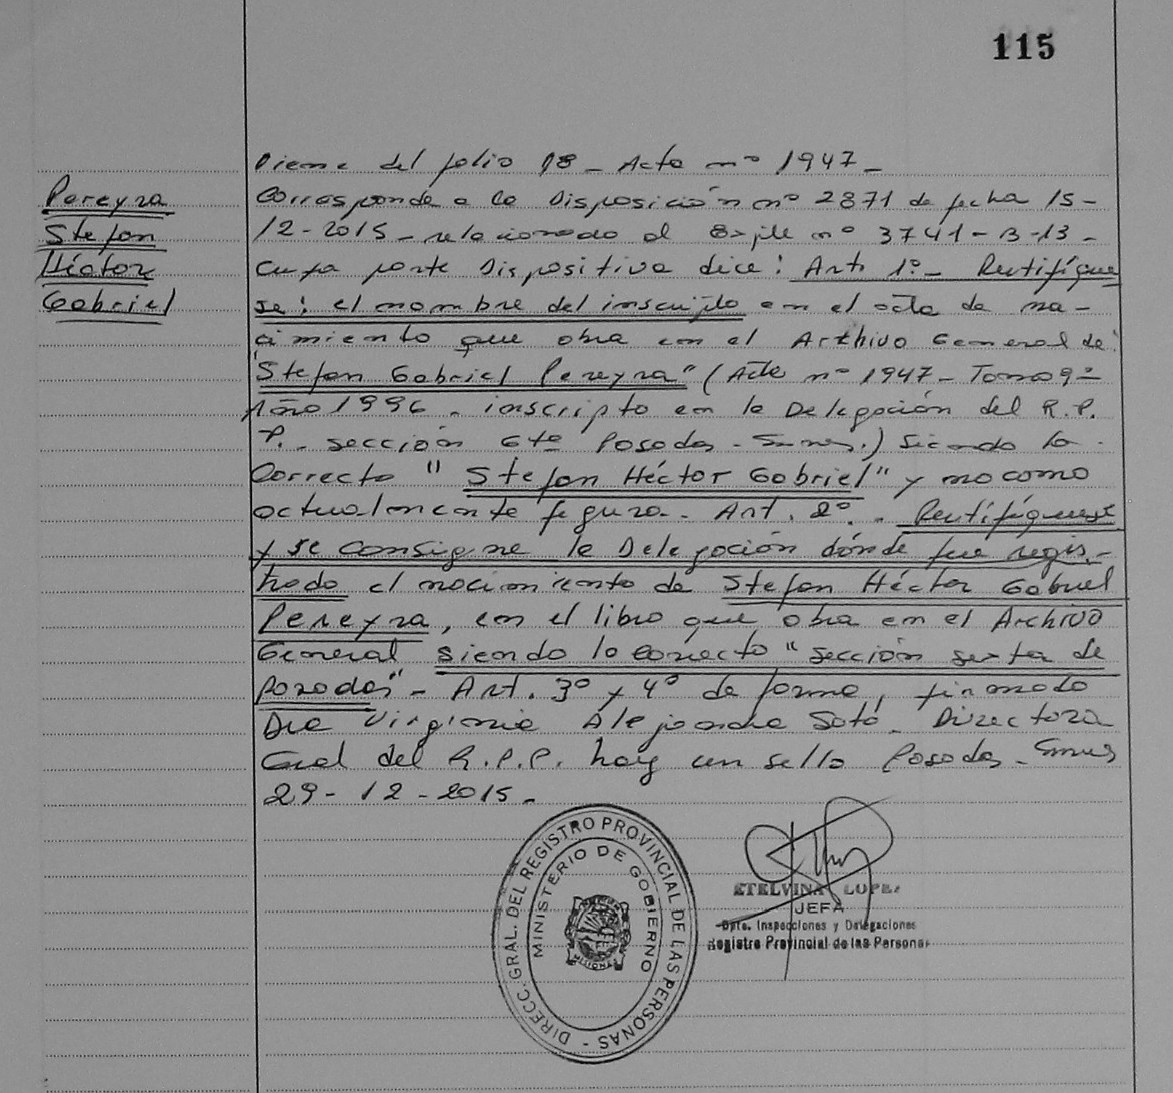 115
Viene del folio 18 - Acta nº 1947 -
Pereyra
Stefan
Héctor
Gabriel
Corresponde a la Disposición nº 2871 de fecha 15-
12-2015 - relacionado al Expte nº 3741-B-13-
cuya parte Dispositiva dice: Art. 1º - Rectifíque
se: el nombre del inscripto en el acta de na-
cimiento que obra en el Archivo General de:
"Stefan Gabriel Pereyra" (Acta nº 1947 - Tomo 9º
Año 1996 - inscripto en la Delegación del R.P.
P. - sección 6ta Posadas - Smnes.) Siendo lo
Correcto "Stefan Héctor Gabriel" y no como
actualmente figura. Art. 2º - Rectifíquese
y se consigne la Delegación dónde fue regis-
trado el nacimiento de Stefan Héctor Gabriel
Pereyra, en el libro que obra en el Archivo
General siendo lo correcto "sección sexta de
posadas" - Art. 3º y 4º de forma, firmado
Dra Virginia Alejandra Soto. Directora
Gral del R.P.P. hay un sello Posadas - Smnes
29-12-2015-
DIRECC. GRAL. DEL REGISTRO PROVINCIAL DE LAS PERSONAS -
MINISTERIO DE GOBIERNO
MISIONES
ETELVINA LOPEZ
JEFA
Dpto. Inspecciones y Delegaciones
Registro Provincial de las Personas